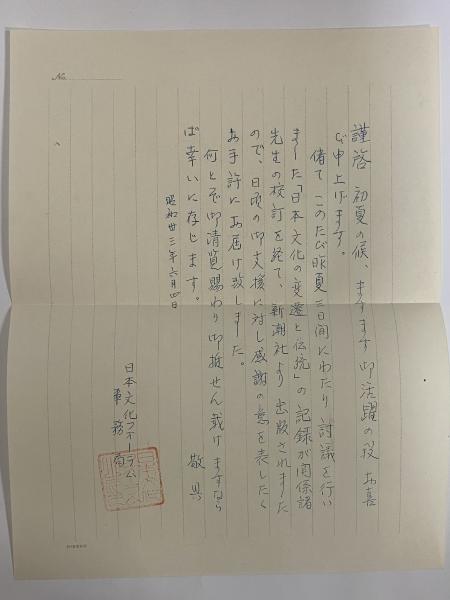 No.
謹啓 初夏の候、ますます御活躍の段 お喜
び申上げます。
偖て このたび昨夏三日間にわたり討議を行い
ました「日本文化の変遷と伝統」の記録が関係諸
先生の校訂を経て、新潮社より出版されました
ので、日頃の御支援に対し感謝の意を表したく
お手許にお届け致しました。
何とぞ御清覧賜わり御 戴けますなら
ば幸いに存じます。
敬具
昭和卅三年六月四日
日本文化フォーラム
事務局